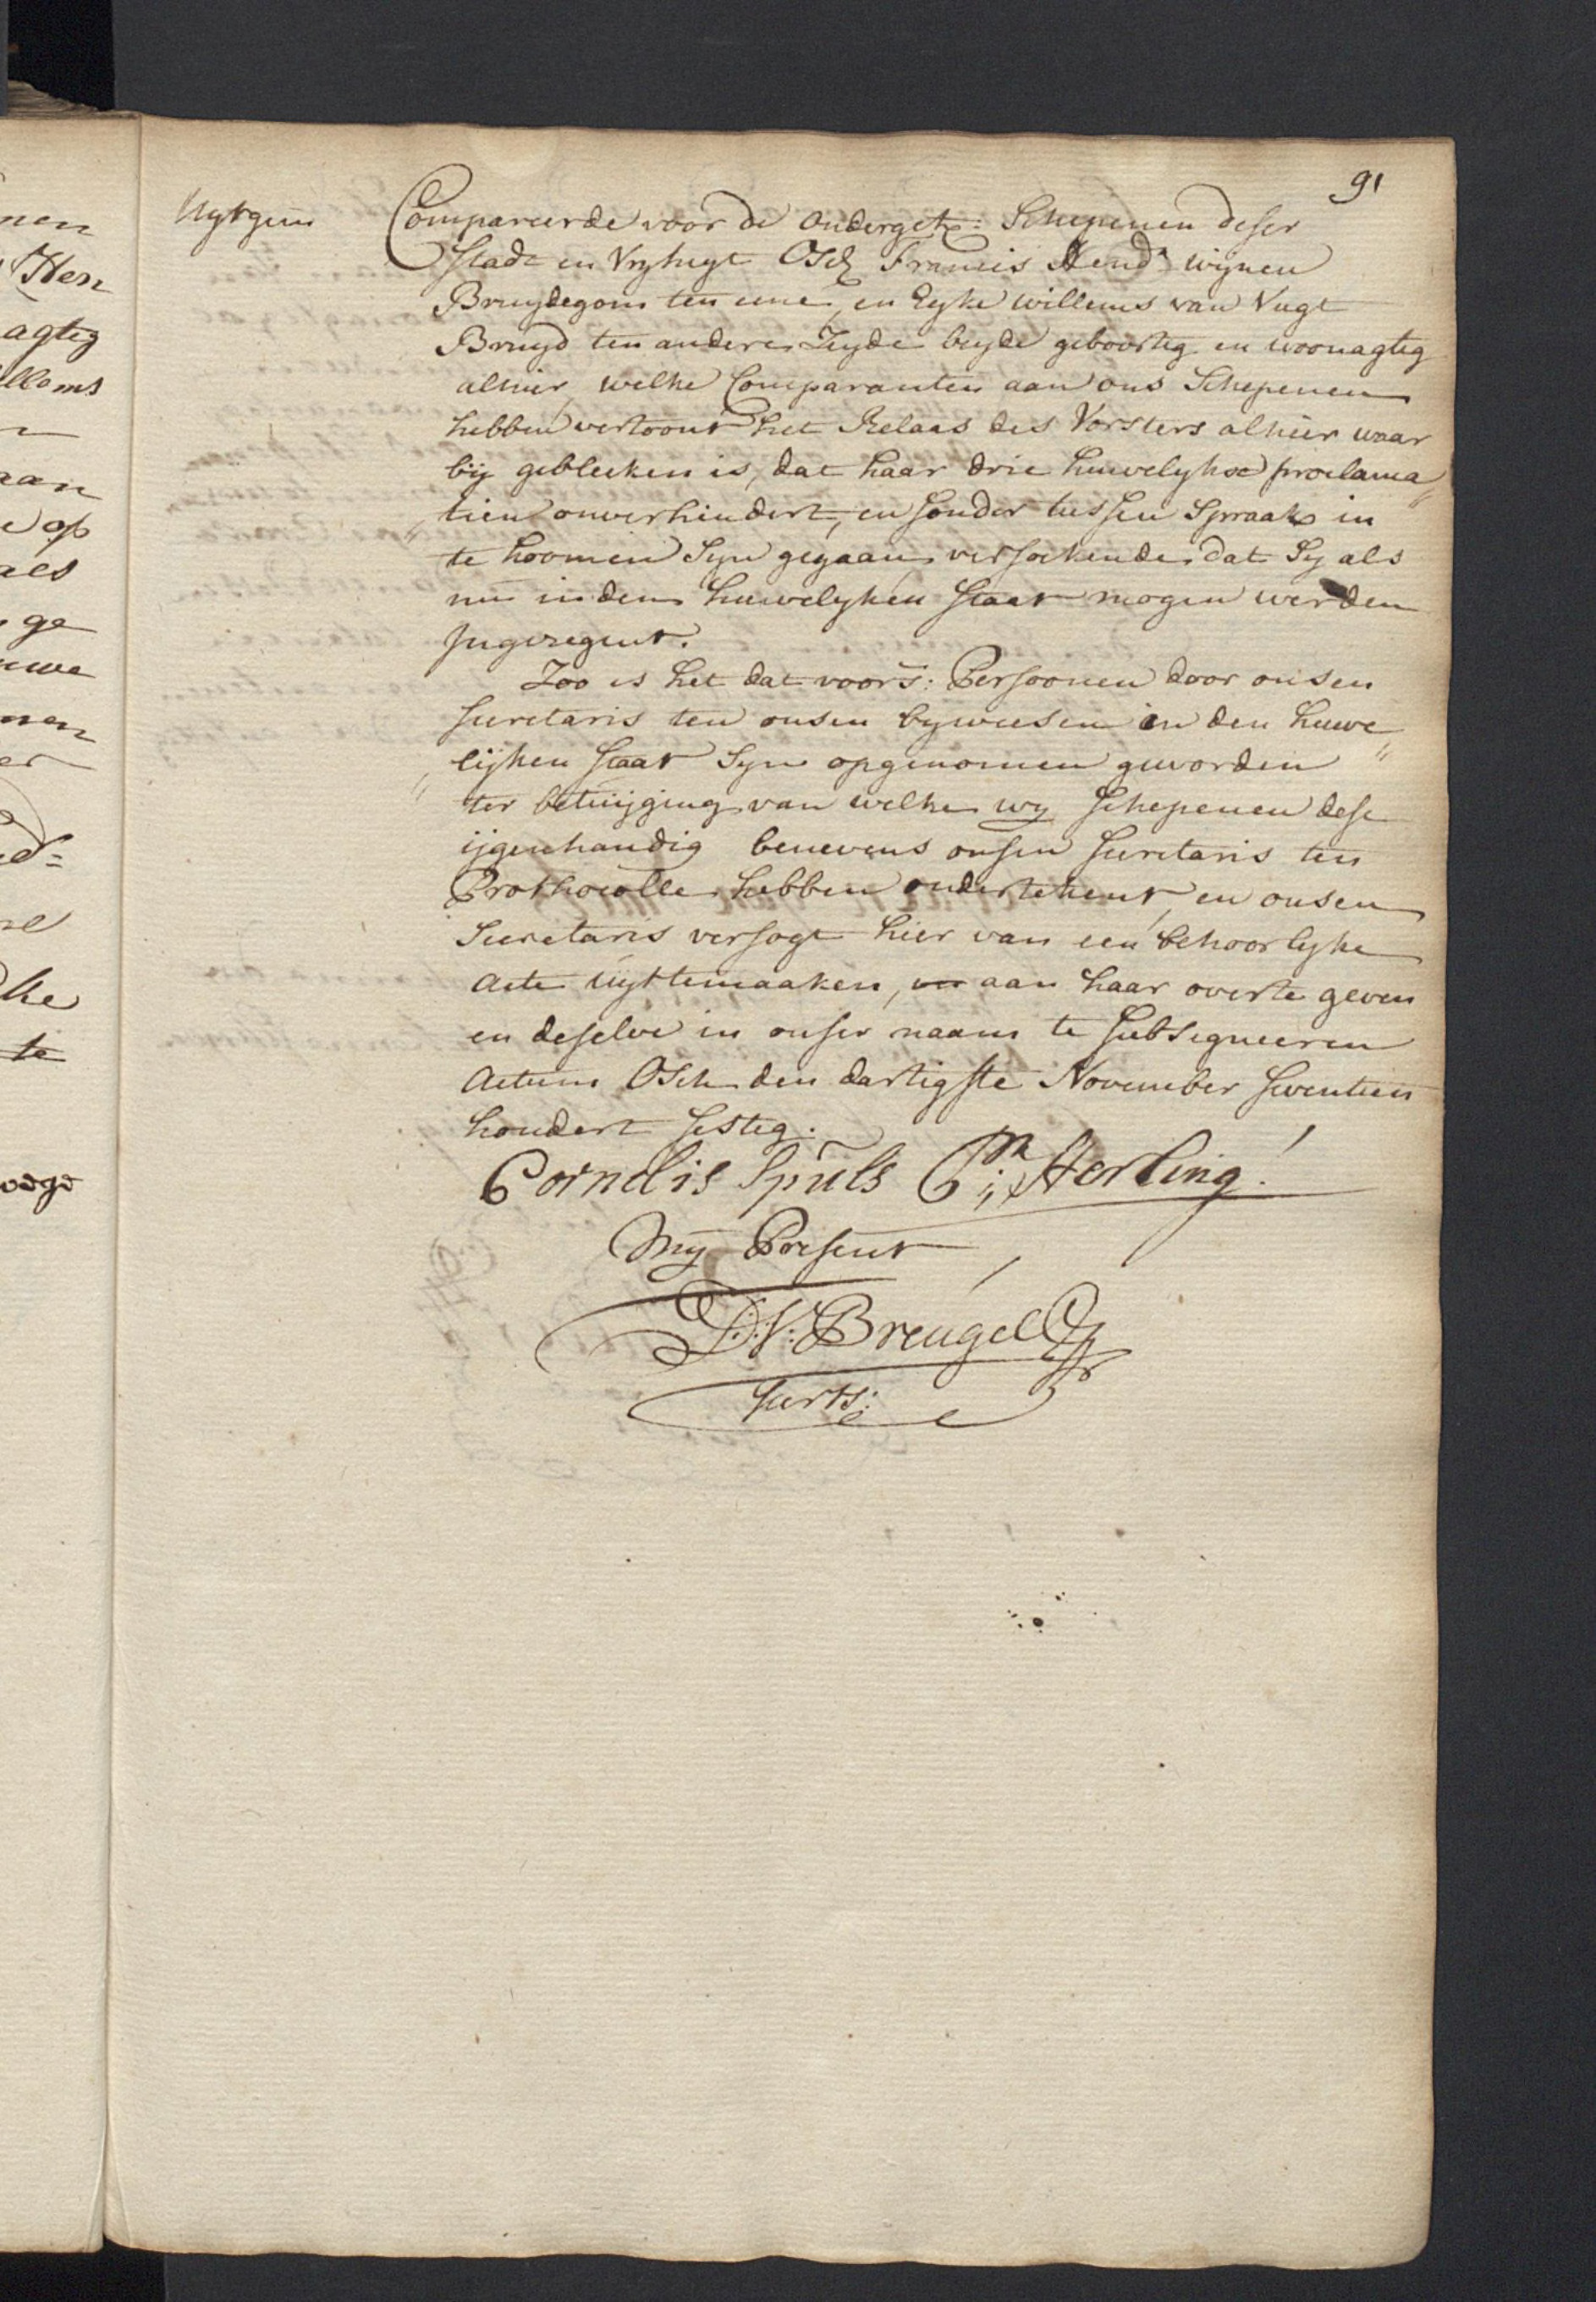 91
Uytgem
Compareerde voor de ondergetx: Schepenen deser
Stadt en Vryheyt Osch Francis Hend.k wijnen
Bruydegom ten eene, en Eyke willems van Vugt
Bruyd ten andere Zeyde beyde geboortig en woonagtig
alhier, welke Comparanten aan ons Schepenen
hebben vertoont het Relaas des Vorsters alhier waar
bij gebleeken is, dat haar drie huwelykse proclama"
"tien onverhindert, en sonder tussen Spraak in
te koomen Syn gegaan, versoekende dat Sy als
nu in den huwelyken Staat mogen werden
Ingezegent.
Zoo is het dat voors: Persoonen door onsen
Secretaris ten onsen byweesen in den huwe"
"lijken staat Syn opgenomen geworden
ter betuijging van welke wy Schepenen dese
ijgenhandig benevens onsen Secretaris ten
Prothocolle hebben ondertekent, en onsen
Secretaris versogt hier van een behoorlyke
acte uyttemaaken, aan haar overte geven
en deselve in onser naam te Subsigneeren
Actum Osch den dartigste November seventien
hondert sestig.
Cornelis Spüls G:n Sterling.
Mij Present
D:V:Breugel
Secrts:
nen
Hen
agtig
llems
aan
op
als
ge
uwe
nen
er
d=
ke
te